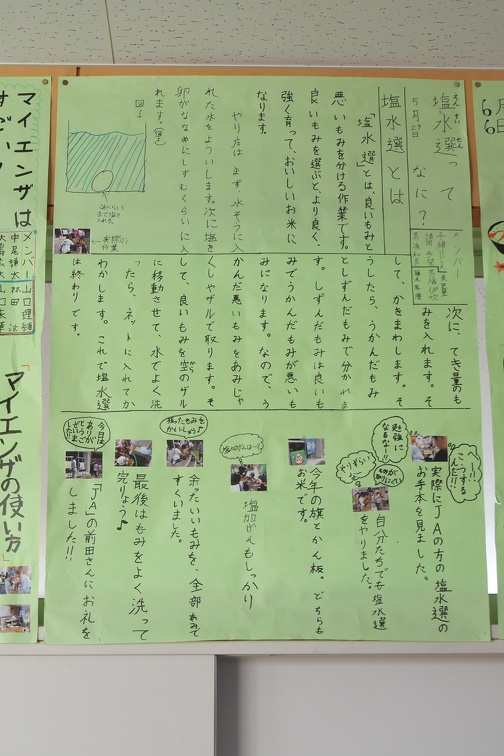 塩水選って
えんすいせん
なに？
5月29日
メンバー
塩水選とは
「塩水選」とは、良いもみと
悪いもみを分ける作業です。
良いもみを選ぶと、より良く、
強く育って、おいしいお米に
なります。
やり方は、まず、水そうに入
れた水をよういします。次に塩を
卵がななめにしずむくらいに入
れます。
図1
これくらい
まで塩を
入れる
←実際の
作業
次に、てき量のも
みを入れます。そ
して、かきまわします。そ
うしたら、うかんだもみ
としずんだもみで分かれま
す。しずんだもみは良いも
みでうかんだもみが悪いも
みになります。なので、う
かんだ悪いもみをあみじゃ
くしやザルで取ります。そ
して、良いもみを空のザル
に移動させて、水でよく洗
ったら、ネットに入れてか
わかします。これで塩水選
は終わりです。
へー!!
こうする
んだ!!
実際にJAの方の塩水選の
お手本を見ました。
勉強に
なるなー!!
やりずらい
自分たちでも塩水選
をやりました。
今年の旗とかん板。どちらも
お米です。
塩加げんは…
塩加げんもしっかり
余ったもみを
かいしゅう♪
余たいいもみを、全部あみで
すくいました。
最後はもみをよく洗って
完りょう♪
今日は
ありが
とうご
ざいま
した!!
「JA」の前田さんにお礼を
しました!!
マイエンザは
すごい！
メンバー
山口理緒
「マイエンザの使い方」